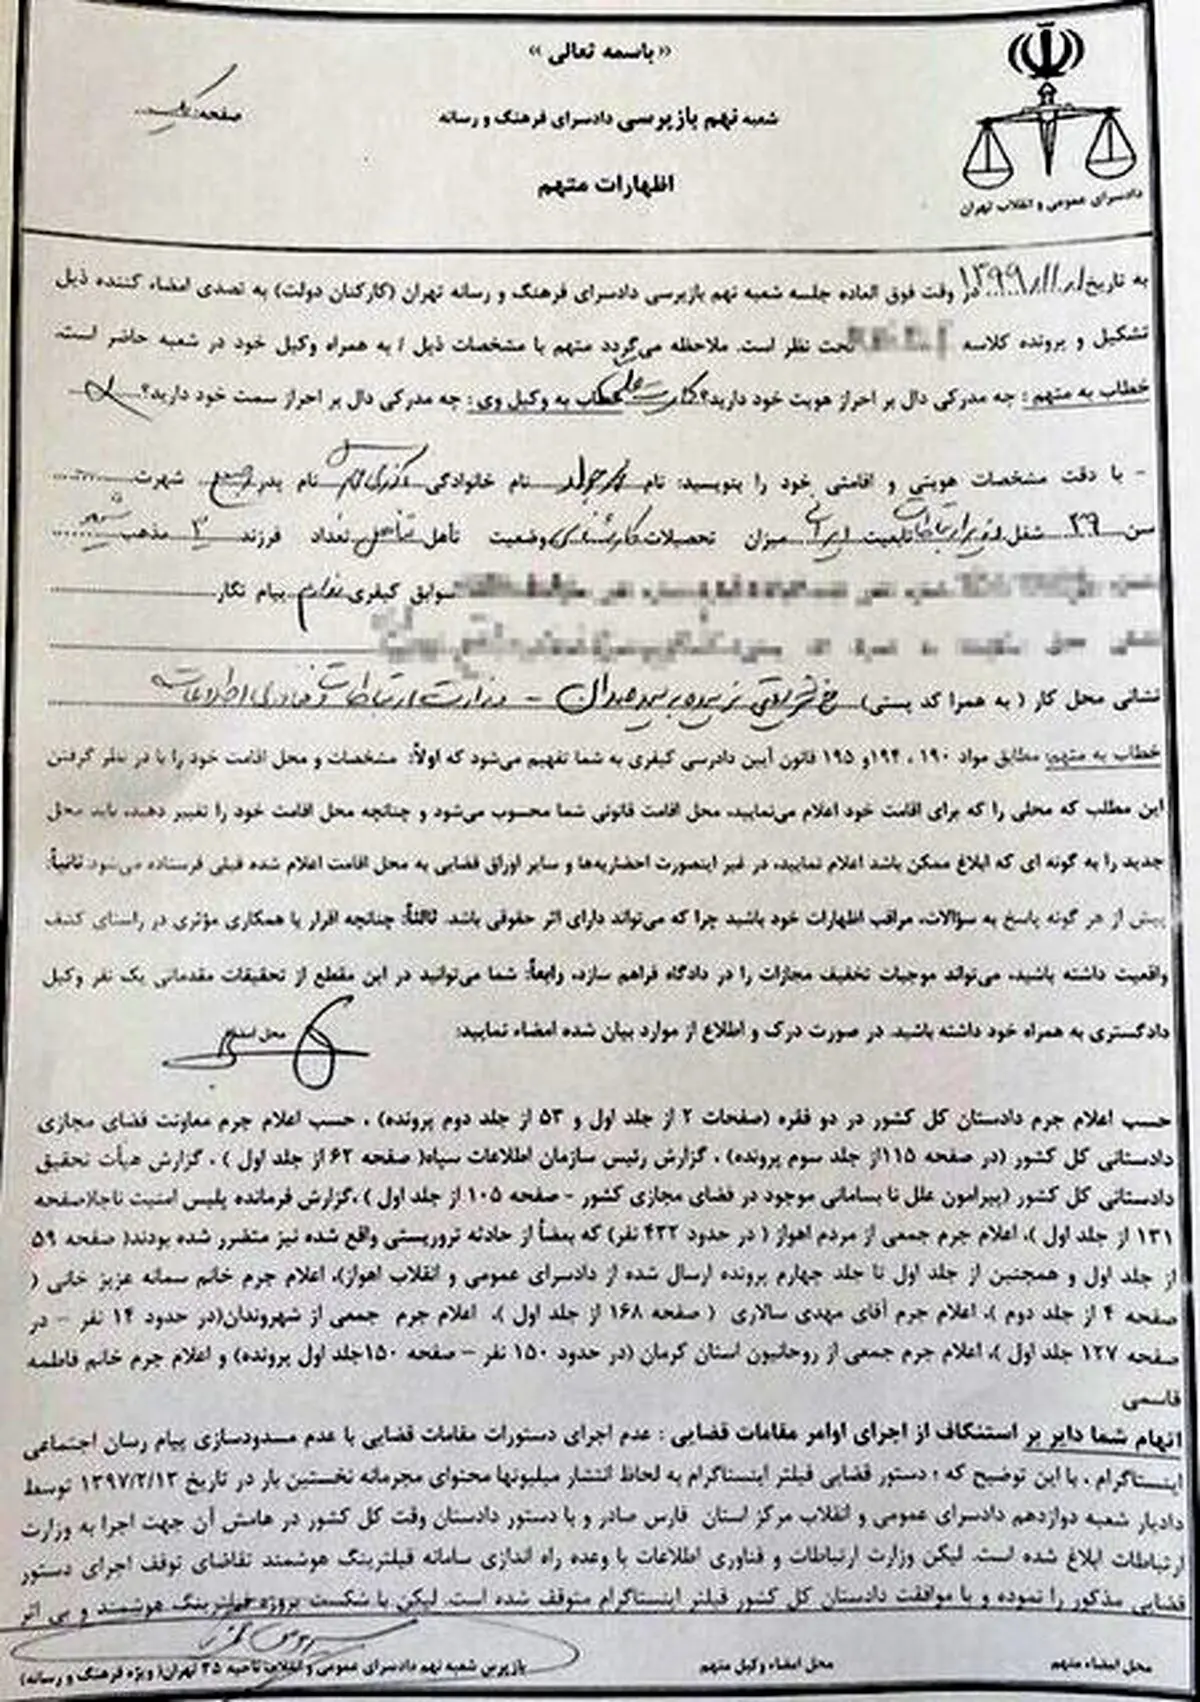 «باسمه تعالی»
صفحه: یک
شعبه نهم بازپرسی دادسرای فرهنگ و رسانه
اظهارات متهم
دادسرای عمومی و انقلاب تهران
به تاریخ ۱۳۹۹/۱۱/۱ در وقت فوق العاده جلسه شعبه نهم بازپرسی دادسرای فرهنگ و رسانه تهران (کارکنان دولت) به تصدی امضاء کننده ذیل
تشکیل و پرونده کلاسه تحت نظر است. ملاحظه می‌گردد متهم با مشخصات ذیل / به همراه وکیل خود در شعبه حاضر است.
خطاب به متهم: چه مدرکی دال بر احراز هویت خود دارید؟ کارت ملی خطاب به وکیل وی: چه مدرکی دال بر احراز سمت خود دارید؟
- با دقت مشخصات هویتی و اقامتی خود را بنویسید: نام محمدجواد نام خانوادگی آذری جهرمی نام پدر شهرت
سن ۳۹ شغل وزیر ارتباطات تابعیت ایرانی میزان تحصیلات کارشناسی وضعیت تأهل متاهل تعداد فرزند ۲ مذهب شیعه
سوابق کیفری ندارم پیام نگار
نشانی محل کار ( به همرا کد پستی) خ شریعتی نرسیده به سیدخندان - وزارت ارتباطات و فناوری اطلاعات
خطاب به متهم: مطابق مواد ۱۹۰ ، ۱۹۴و ۱۹۵ قانون آیین دادرسی کیفری به شما تفهیم می‌شود که اولاً: مشخصات و محل اقامت خود را با در نظر گرفتن
این مطلب که محلی را که برای اقامت خود اعلام می‌نمایید، محل اقامت قانونی شما محسوب می‌شود و چنانچه محل اقامت خود را تغییر دهید، باید محل
جدید را به گونه ای که ابلاغ ممکن باشد اعلام نمایید، در غیر اینصورت احضاریه‌ها و سایر اوراق قضایی به محل اقامت اعلام شده قبلی فرستاده می‌شود ثانیاً:
پیش از هر گونه پاسخ به سؤالات، مراقب اظهارات خود باشید چرا که می‌تواند دارای اثر حقوقی باشد. ثالثاً: چنانچه اقرار یا همکاری مؤثری در راستای کشف
واقعیت داشته باشید، می‌تواند موجبات تخفیف مجازات را در دادگاه فراهم سازد، رابعاً: شما می‌توانید در این مقطع از تحقیقات مقدماتی یک نفر وکیل
دادگستری به همراه خود داشته باشید. در صورت درک و اطلاع از موارد بیان شده امضاء نمایید: محل امضا
حسب اعلام جرم دادستان کل کشور در دو فقره (صفحات ۲ از جلد اول و ۵۳ از جلد دوم پرونده) ، حسب اعلام جرم معاونت فضای مجازی
دادستانی کل کشور (در صفحه ۱۱۵از جلد سوم پرونده) ، گزارش رئیس سازمان اطلاعات سپاه( صفحه ۶۲ از جلد اول ) ، گزارش هیأت تحقیق
دادستانی کل کشور (پیرامون علل نا بسامانی موجود در فضای مجازی کشور - صفحه ۱۰۵ از جلد اول ) ،گزارش فرمانده پلیس امنیت ناجا(صفحه
۱۳۱ از جلد اول )، اعلام جرم جمعی از مردم اهواز ( در حدود ۴۳۲ نفر) که بعضاً از حادثه تروریستی واقع شده نیز متضرر شده بودند( صفحه ۵۹
از جلد اول و همچنین از جلد اول تا جلد چهارم پرونده ارسال شده از دادسرای عمومی و انقلاب اهواز)، اعلام جرم خانم سمانه عزیز خانی (
صفحه ۴ از جلد دوم )، اعلام جرم آقای مهدی سالاری ( صفحه ۱۶۸ از جلد اول )، اعلام جرم جمعی از شهروندان(در حدود ۱۴ نفر - در
صفحه ۱۲۷ جلد اول )، اعلام جرم جمعی از روحانیون استان کرمان (در حدود ۱۵۰ نفر - صفحه ۱۵۰جلد اول پرونده) و اعلام جرم خانم فاطمه
قاسمی
اتهام شما دایر بر استنکاف از اجرای اوامر مقامات قضایی : عدم اجرای دستورات مقامات قضایی با عدم مسدودسازی پیام رسان اجتماعی
اینستاگرام ، با این توضیح که : دستور قضایی فیلتر اینستاگرام به لحاظ انتشار میلیونها محتوای مجرمانه نخستین بار در تاریخ ۱۳۹۷/۲/۱۳ توسط
دادیار شعبه دوازدهم دادسرای عمومی و انقلاب مرکز استان فارس صادر و با دستور دادستان وقت کل کشور در هامش آن جهت اجرا به وزارت
ارتباطات ابلاغ شده است. لیکن وزارت ارتباطات و فناوری اطلاعات با وعده راه اندازی سامانه فیلترینگ هوشمند تقاضای توقف اجرای دستور
قضایی مذکور را نموده و با موافقت دادستان کل کشور فیلتر اینستاگرام متوقف شده است. لیکن با شکست پروژه فیلترینگ هوشمند و بی اثر
محل امضاء متهم
محل امضاء وکیل متهم
بازپرس شعبه نهم دادسرای عمومی و انقلاب ناحیه ۳۵ تهران( ویژه فرهنگ و رسانه)